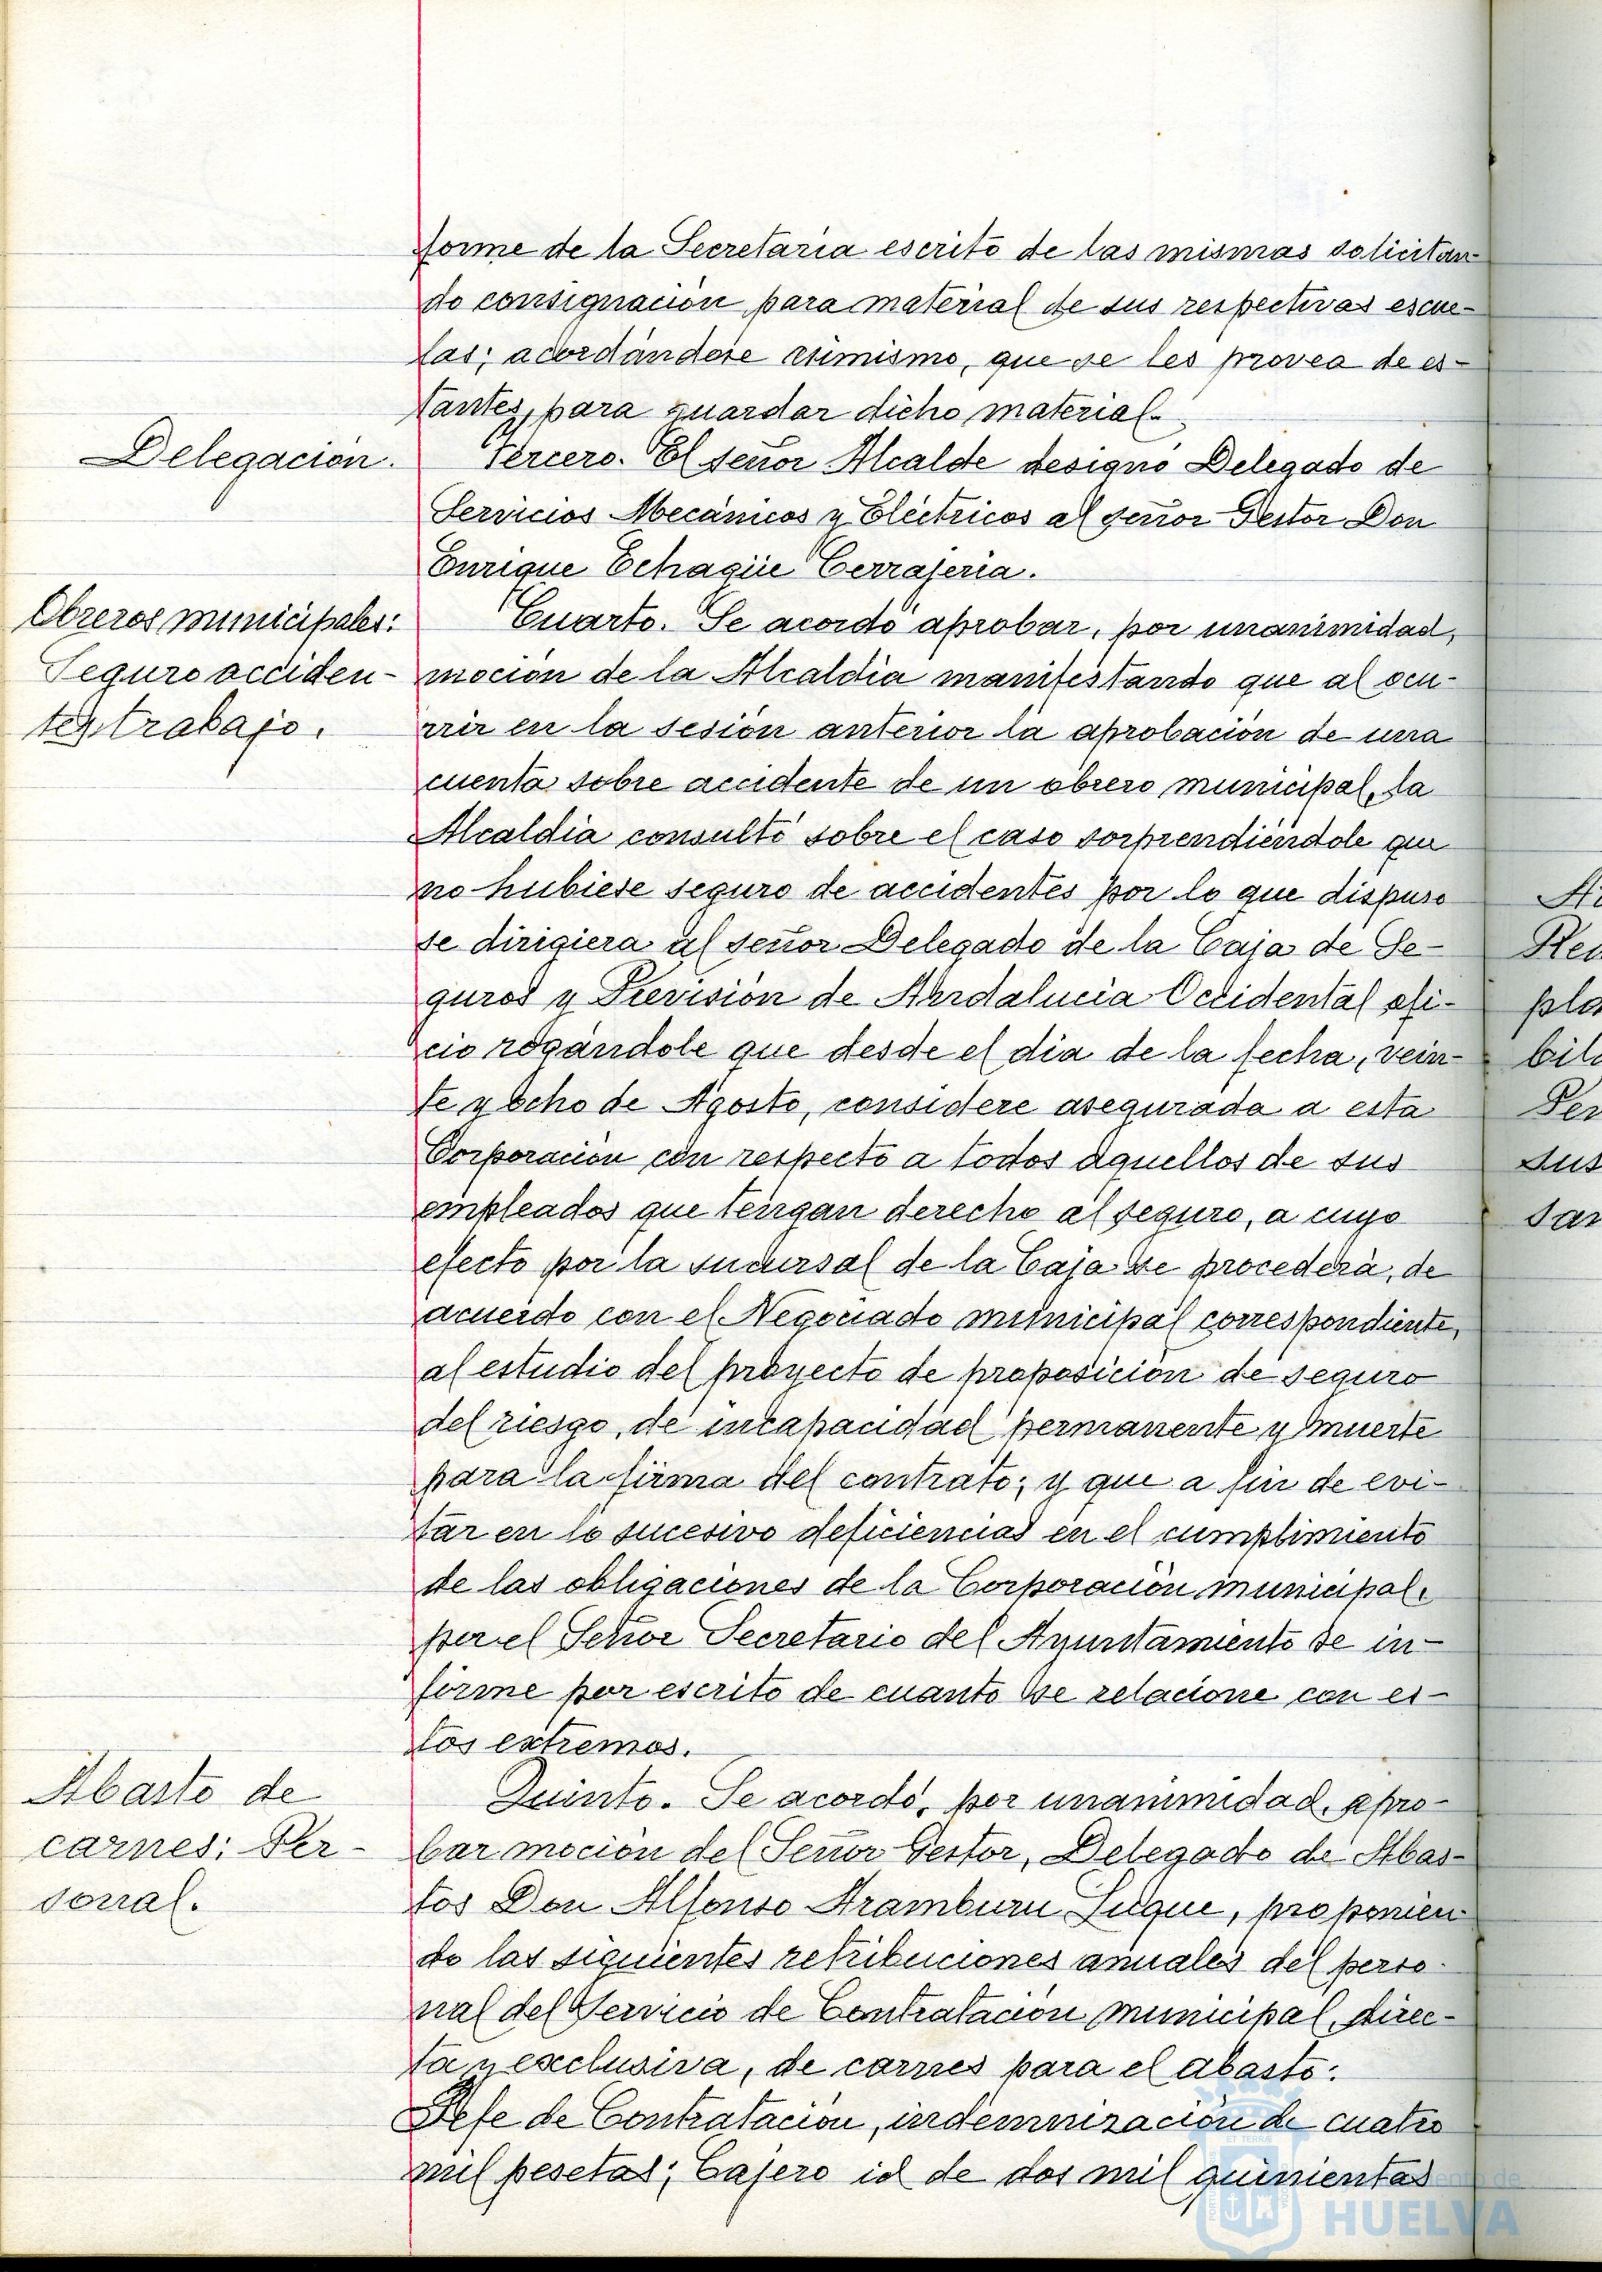 forme de la Secretaría escrito de las mismas solicitan-
do consignación para material de sus respectivas escue-
las; acordándose asimismo, que se les provea de es-
tantes, para guardar dicho material.
Delegación.
Tercero. El señor Alcalde designó Delegado de
Servicios Mecánicos y Eléctricos al señor Gestor Don
Enrique Echagüe Cerrajería.
Obreros municipales:
Seguro acciden-
tes trabajo.
Cuarto. Se acordó aprobar, por unanimidad,
moción de la Alcaldía manifestando que al ocu-
rrir en la sesión anterior la aprobación de una
cuenta sobre accidente de un obrero municipal, la
Alcaldía consultó sobre el caso sorprendiéndole que
no hubiese seguro de accidentes por lo que dispuso
se dirigiera al señor Delegado de la Caja de Se-
guros y Previsión de Andalucía Occidental ofi-
cio rogándole que desde el día de la fecha, vein-
te y ocho de Agosto, considere asegurada a esta
Corporación con respecto a todos aquellos de sus
empleados que tengan derecho al seguro, a cuyo
efecto por la sucursal de la Caja se procederá, de
acuerdo con el Negociado municipal correspondiente,
al estudio del proyecto de proposición de seguro
del riesgo, de incapacidad permanente y muerte
para la firma del contrato; y que a fin de evi-
tar en lo sucesivo deficiencias en el cumplimiento
de las obligaciones de la Corporación municipal,
por el Señor Secretario del Ayuntamiento se in-
forme por escrito de cuanto se relacione con es-
tos extremos.
Abasto de
carnes: Per-
sonal.
Quinto. Se acordó, por unanimidad, apro-
bar moción del Señor Gestor, Delegado de Abas-
tos Don Alfonso Aramburu Luque, proponien-
do las siguientes retribuciones anuales del perso-
nal del Servicio de Contratación municipal, direc-
ta y exclusiva, de carnes para el abasto:
Jefe de Contratación, indemnización de cuatro
mil pesetas; Cajero id de dos mil quinientas
pla
bil
Per
sus
sar
HUELVA